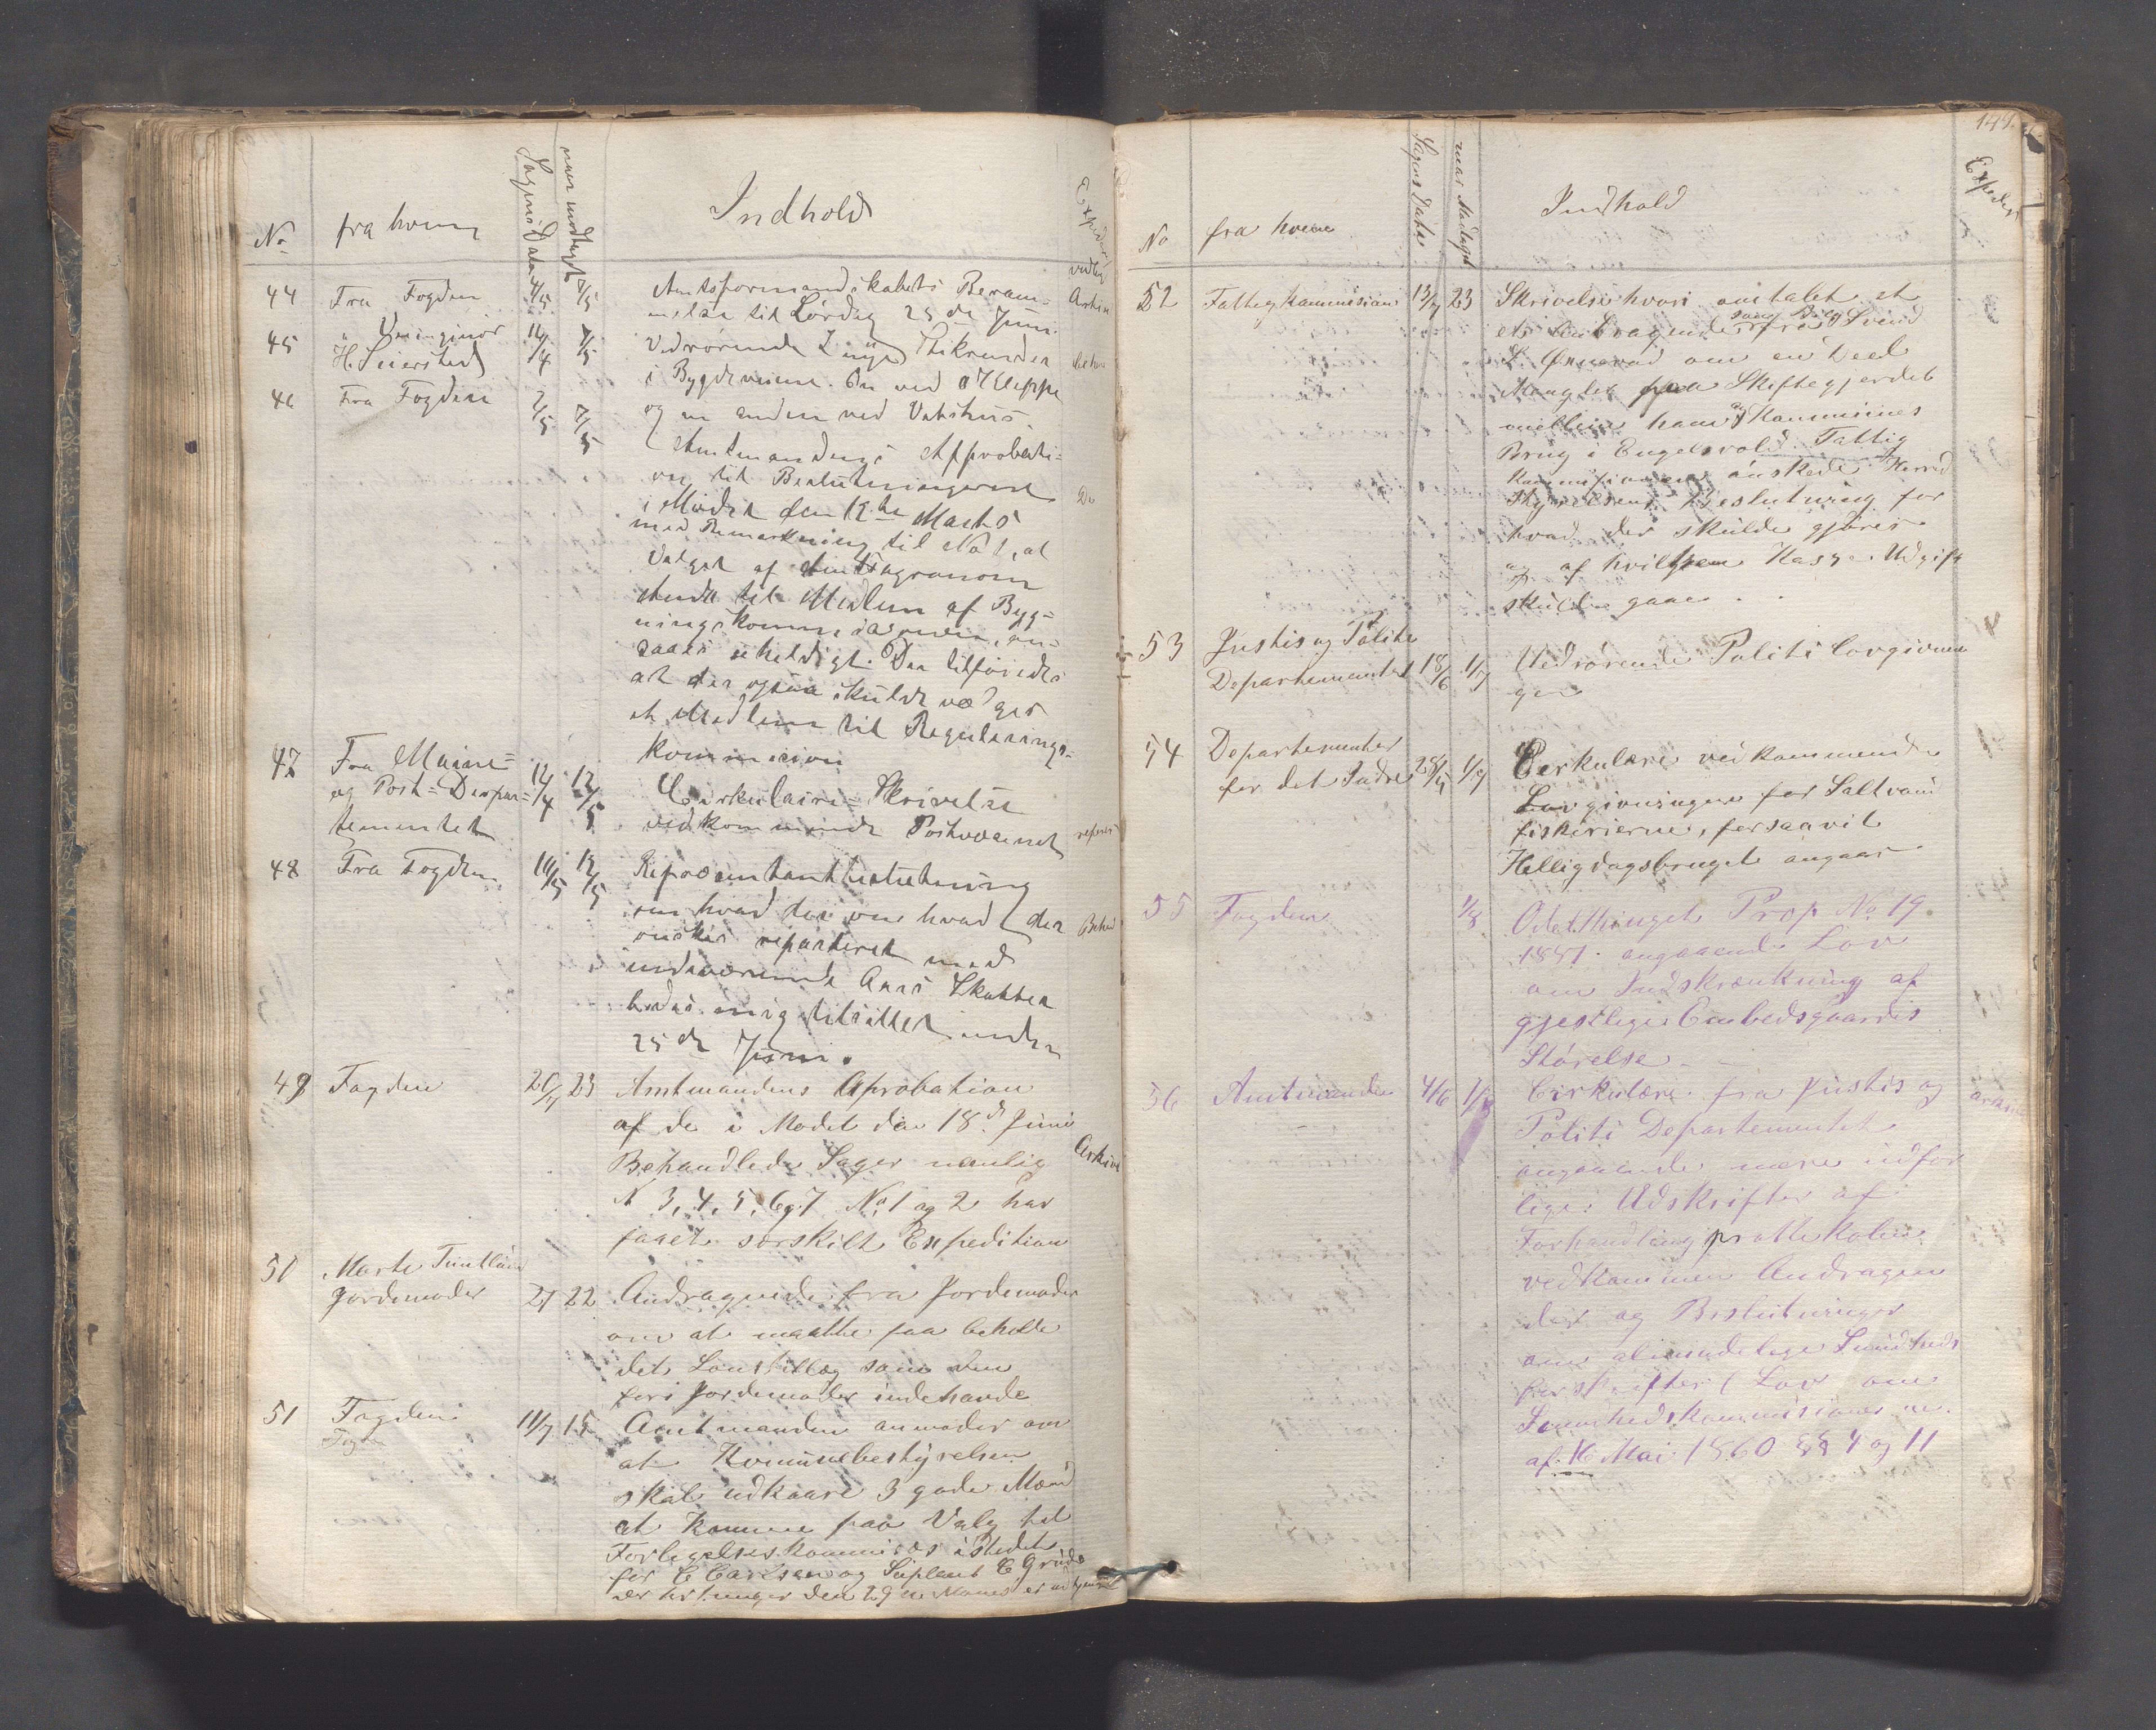 No.
fra hvem
Sagens Dato
naar modtaget
Indhold
44
Fra Fogden
4/5
7/5
Amtsformandskabets Beram-
melse til Lørdag 25de Juni
45
H. Seiersted
14/4
7/5
Vedrørende 2 nye
i Bygdeveiene. En ved Kleppe
og en anden ved Vatshus
46
Fra Fogden
2/5
7/5
Amtmandens Approbati-
on til Beslutningerne
i Mødet den 12te Marts
med Bemerkning til No 1, at
Valget af Amtsagronom
til Medlem af Byg-
ningskommisionen, an-
saaes uheldigt. Der tilføiedes
at der ogsaa skulde vælges
et Medlem til Regulerings-
kommision
Do
47
Fra Marine-
og Post-Depar-
tementet
14/4
12/5
Cirkulaire-Skrivelse
vedkommende Postvæsenet
48
Fra Fogden
10/5
12/5
Repræsentantbeslutning
om hvad der om hvad der
ønskes reparteret med
indeværende Aars Skatter
bedes mig tilstillet inden
25de Juni.
49
Fogden
20/7
23
Amtmandens Aprobation
af de i Mødet den 18de Juni
Behandlede Sager nemlig
N 3, 4, 5, 6 og 7 No 1 og 2 har
faaet særskilt Expedition
Arkiv
50
Marte
Jordemoder
22
Andragende fra Jordemoder
om at maatte faa beholde
det Lønstillæg som den
før Jordemoder indehavde
51
Fogden
11/7
15
Amtmanden anmoder om
at Kommunebestyrelsen
skal udkaare 3 gode Mænd
at komme paa Valg til
Forligelseskommisær istedet
for C Carlsen og Suplent E Grude
147.
No
fra hvem
Sagens Dato
naar Modtaget
Indhold
Expedert
52
Fattigkommisionen
13/7
23
Skrivelse hvori omtalet et
et Andragende fra Svend
L. om en Deel
Mangler paa Skiftegjerdet
mellem ham og Kommunes
Brug i Engelsvold. Fattig
kommisionen ønskede Herred
styrelsens Beslutning for
hvad der skulde gjøres
og af hvilken Kasse Udgift
skulde gaae
53
Justis og Politi
Departementet
18/6
1/7
Vedrørende Politi Lovgivnin
gen
54
Departementet
for det Indre
28/5
1/7
Cirkulære vedkommende
Lovgivningen for Saltvans
fiskerierne, forsaavit
Helligdagsbruget angaar
55
Fogden
1/8
Odelsthingets Prop No 19
1881 angaaende Lov
om Indskrænkning af
gjestlige Embedsgaardes
Størelse
56
Amtmanden
4/6
Cirkulære fra Justis og
Politi Departementet
angaaende mere udfør
lige Udskrifter af
Forhandlingprottekolen
vedkommen Andragen
der og Beslutninger
om almindelige Sundheds
forskrifter (Lov om
Sunnhedskommisioner m.
af 16 Mai 1860 §§ 4 og 11